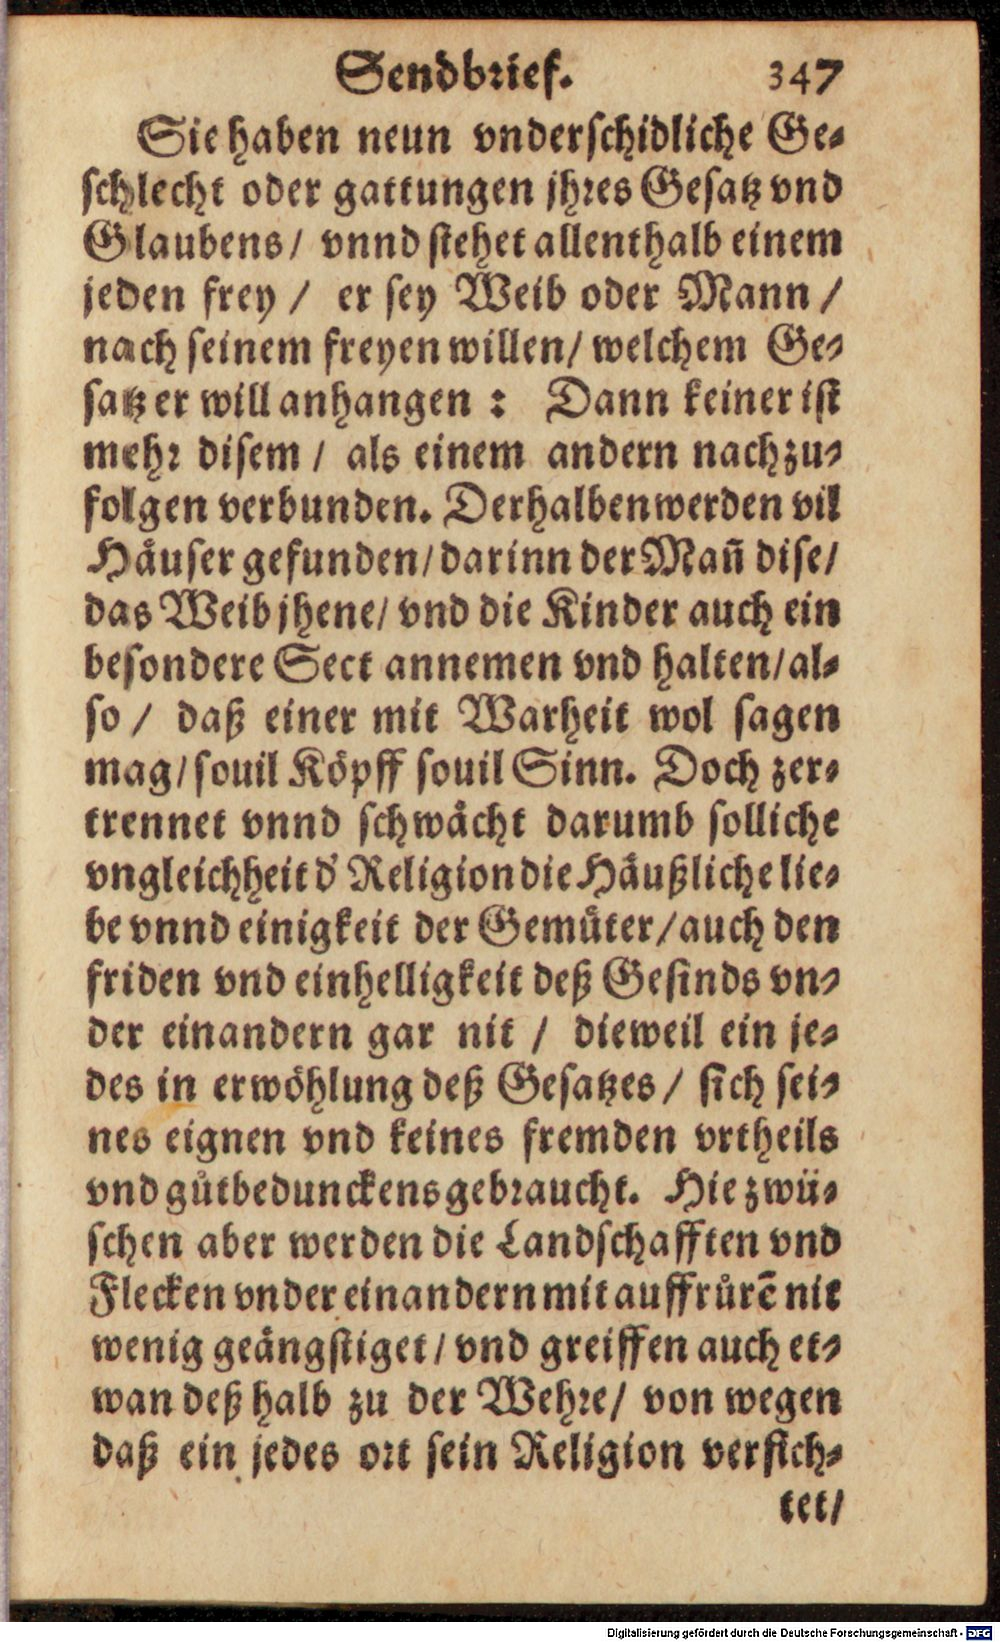 Sendbrief. 347
Sie haben neun vnderschidliche Ge-
schlecht oder gattungen jhres Gesatz vnd
Glaubens/ vnnd stehet allenthalb einem
jeden frey / er sey Weib oder Mann /
nach seinem freyen willen/ welchem Ge-
satz er will anhangen : Dann keiner ist
mehr disem / als einem andern nachzu-
folgen verbunden. Derhalben werden vil
Häuser gefunden/ darinn der Mañ dise/
das Weib jhene/ vnd die Kinder auch ein
besondere Sect annemen vnd halten/ al-
so / daß einer mit Warheit wol sagen
mag/ souil Köpff souil Sinn. Doch zer-
trennet vnnd schwächt darumb solliche
vngleichheit d' Religion die Häußliche lie-
be vnnd einigkeit der Gemüter/ auch den
friden vnd einhelligkeit deß Gesinds vn-
der einandern gar nit / dieweil ein je-
des in erwöhlung deß Gesatzes / sich sei-
nes eignen vnd keines fremden vrtheils
vnd gůtbedunckens gebraucht. Hiezwü-
schen aber werden die Landschafften vnd
Flecken vnder einandern mit auffrůrē nit
wenig geängstiget/ vnd greiffen auch et-
wan deßhalb zu der Wehre/ von wegen
daß ein jedes ort sein Religion versich-
tet/
Digitalisierung gefördert durch die Deutsche Forschungsgemeinschaft - DFG